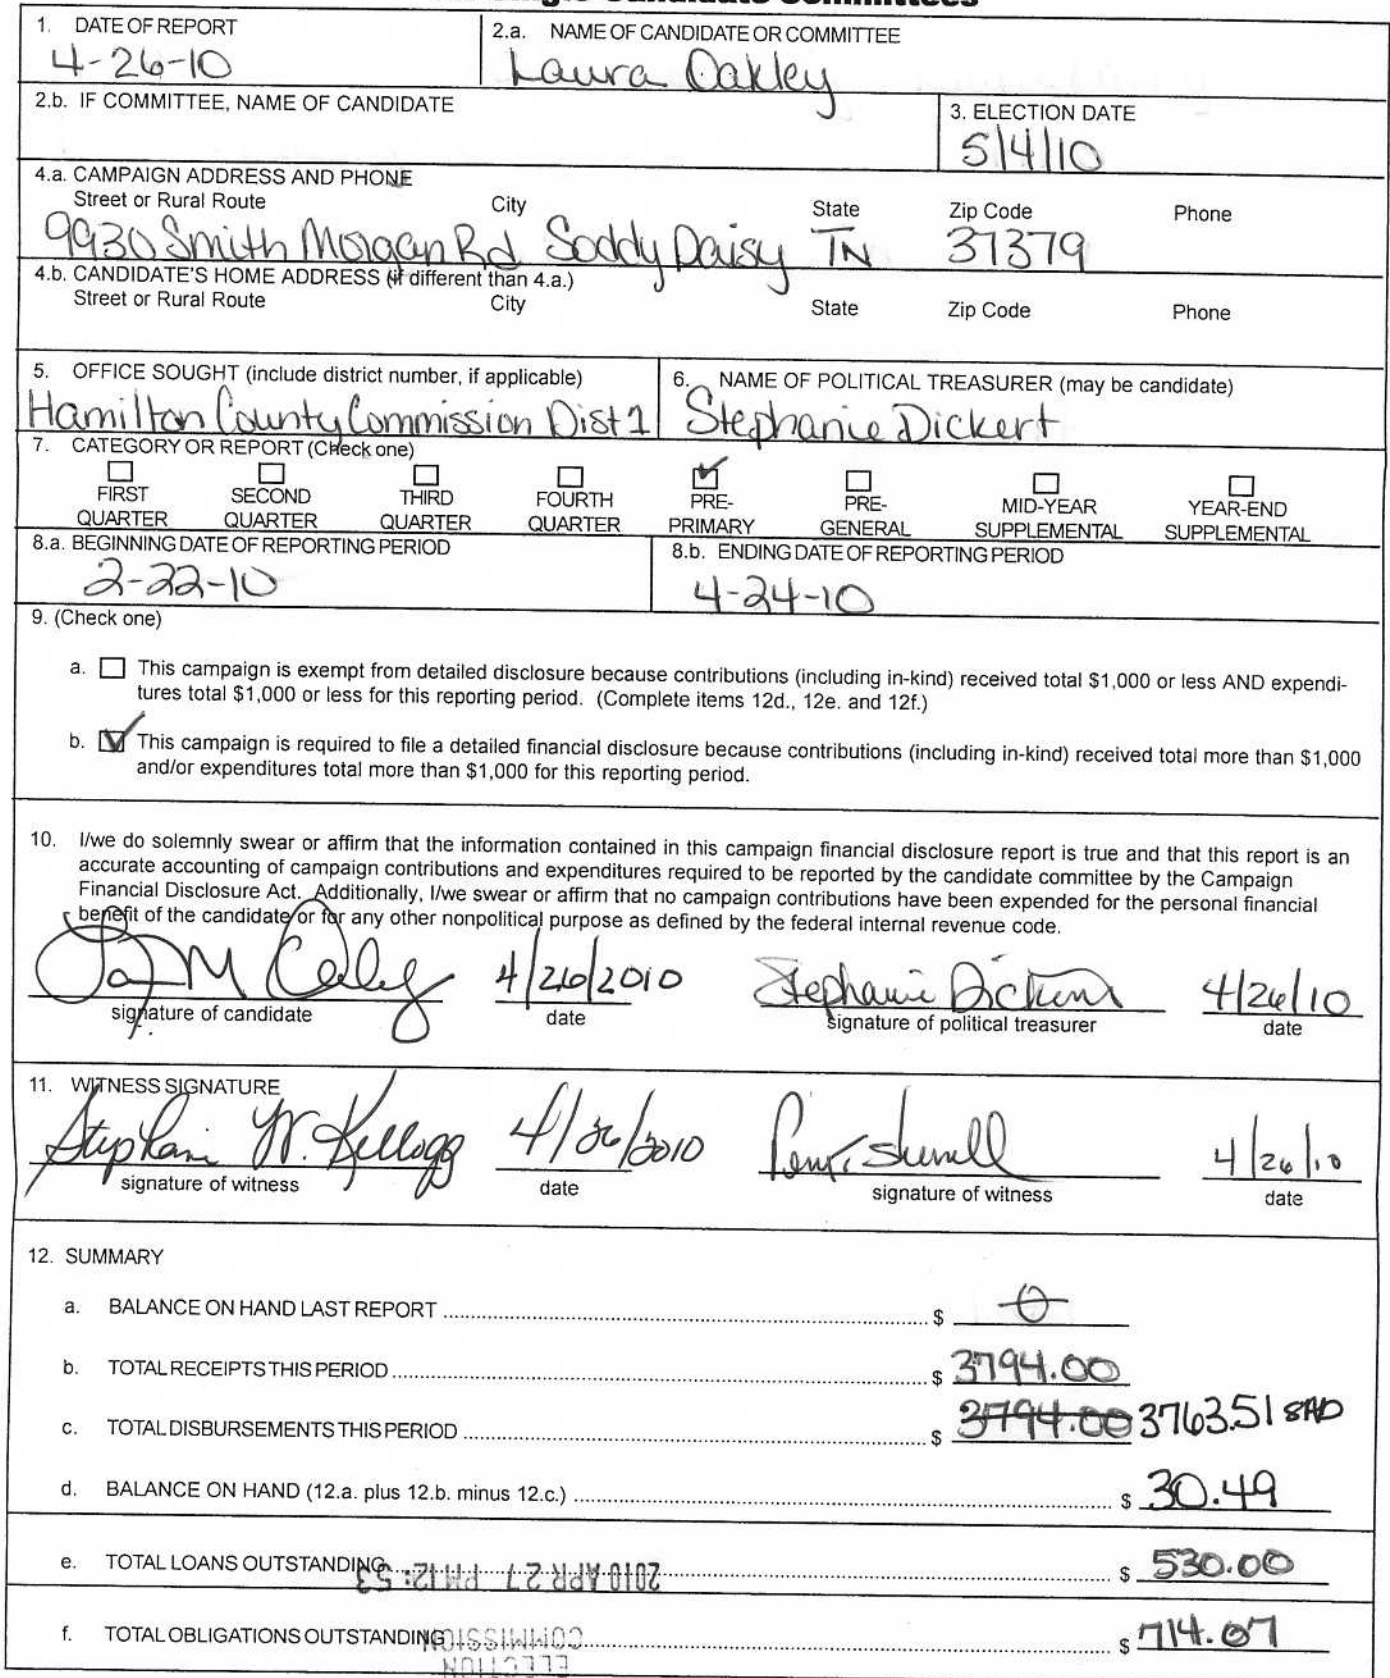 1. DATE OF REPORT
4-26-10
2.a. NAME OF CANDIDATE OR COMMITTEE
Laura Oakley
2.b. IF COMMITTEE, NAME OF CANDIDATE
3. ELECTION DATE
5/4/10
4.a. CAMPAIGN ADDRESS AND PHONE
Street or Rural Route City State Zip Code Phone
9930 Smith Morgan Rd Soddy Daisy TN 37379
4.b. CANDIDATE'S HOME ADDRESS (if different than 4.a.)
Street or Rural Route City State Zip Code Phone
5. OFFICE SOUGHT (include district number, if applicable)
Hamilton County Commission Dist 1
6. NAME OF POLITICAL TREASURER (may be candidate)
Stephanie Dickert
7. CATEGORY OR REPORT (Check one)
FIRST QUARTER
SECOND QUARTER
THIRD QUARTER
FOURTH QUARTER
PRE-PRIMARY
PRE-GENERAL
MID-YEAR SUPPLEMENTAL
YEAR-END SUPPLEMENTAL
8.a. BEGINNING DATE OF REPORTING PERIOD
2-22-10
8.b. ENDING DATE OF REPORTING PERIOD
4-24-10
9. (Check one)
a. This campaign is exempt from detailed disclosure because contributions (including in-kind) received total $1,000 or less AND expendi-
tures total $1,000 or less for this reporting period. (Complete items 12d., 12e. and 12f.)
b. This campaign is required to file a detailed financial disclosure because contributions (including in-kind) received total more than $1,000
and/or expenditures total more than $1,000 for this reporting period.
10. I/we do solemnly swear or affirm that the information contained in this campaign financial disclosure report is true and that this report is an
accurate accounting of campaign contributions and expenditures required to be reported by the candidate committee by the Campaign
Financial Disclosure Act. Additionally, I/we swear or affirm that no campaign contributions have been expended for the personal financial
benefit of the candidate or for any other nonpolitical purpose as defined by the federal internal revenue code.
4/26/2010 Stephanie Dickert 4/26/10
signature of candidate date signature of political treasurer date
11. WITNESS SIGNATURE
Stephani W. Kellogg 4/26/2010 4/26/10
signature of witness date signature of witness date
12. SUMMARY
a. BALANCE ON HAND LAST REPORT $ 0
b. TOTAL RECEIPTS THIS PERIOD $ 3794.00
c. TOTAL DISBURSEMENTS THIS PERIOD $ 3794.00 3763.51 SAD
d. BALANCE ON HAND (12.a. plus 12.b. minus 12.c.) $ 30.49
e. TOTAL LOANS OUTSTANDING $ 530.00
2010 APR 27 PM 12: 53
f. TOTAL OBLIGATIONS OUTSTANDING $ 714.07
COMMISSION
ELECTION